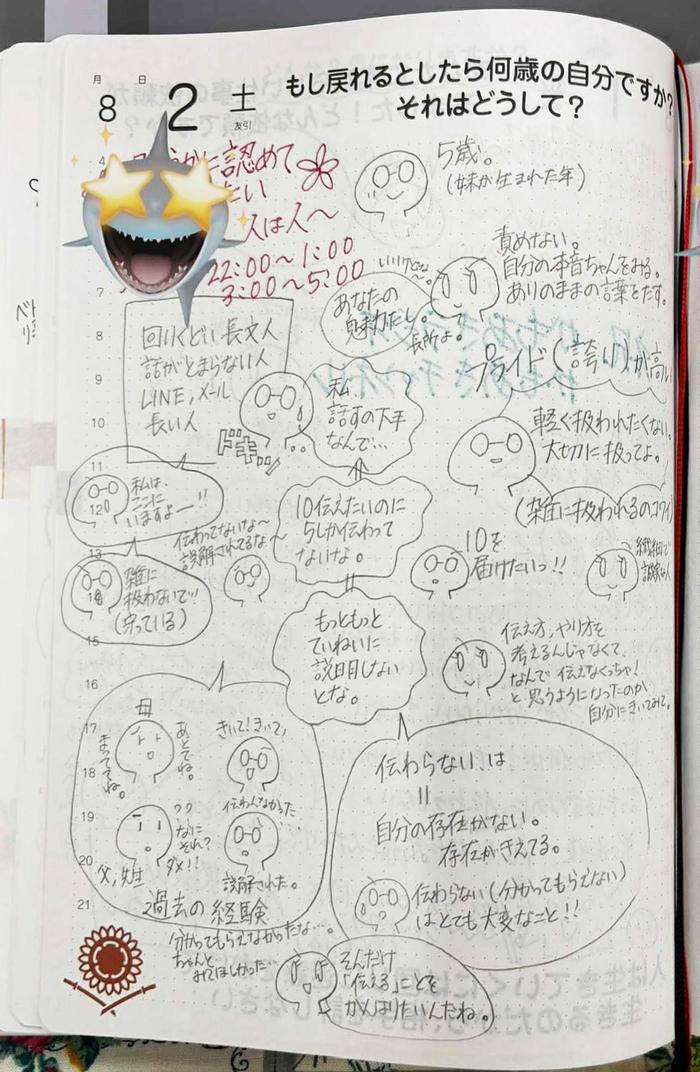 月 日
8 2 土
友引
もし戻れるとしたら何歳の自分ですか?
それはどうして?
認めて
たい
人は人〜
22:00〜1:00
3:00〜5:00
5歳。
(妹が生まれた年)
いいけどな〜。
あなたの
魅力だし。
長所よ。
責めない。
自分の本音ちゃんをみる。
ありのままの言葉をだす。
プライド(誇り)が高い
回りくどい長文人
話がとまらない人
LINE,メール
長い人
ドキッ
私
話すの下手
なんで…
軽く扱われたくない。
大切に扱ってよ。
(雑に扱われるのコワイ)
私は、
ここに
いますよー!!
伝わってないな〜
誤解されてるな〜
10伝えたいのに
5しか伝わって
ないな。
10を
届けたいっ!!
繊細で
雑に
扱わないで!!
(守っている)
もっともっと
ていねいに
説明しない
とな。
伝え方,やり方を
考えるんじゃなくて、
なんで伝えなくっちゃ!
と思うようになったのか
自分にきいてみて。
母
あとでね。
まっててね。
きいて!きいて!
伝わんなかった
??
なに
それ?
ダメ!!
父,先生
誤解された。
過去の経験
伝わらない、は
=
自分の存在がない。
存在がきえてる。
伝わらない(分かってもらえない)
はとても大変なこと!!
分かってもらえなかったな…。
ちゃんと
みてほしかった…
そんだけ
「伝える」ことを
がんばりたいんたね。
4
7
8
9
10
11
12
13
15
16
17
18
19
20
21